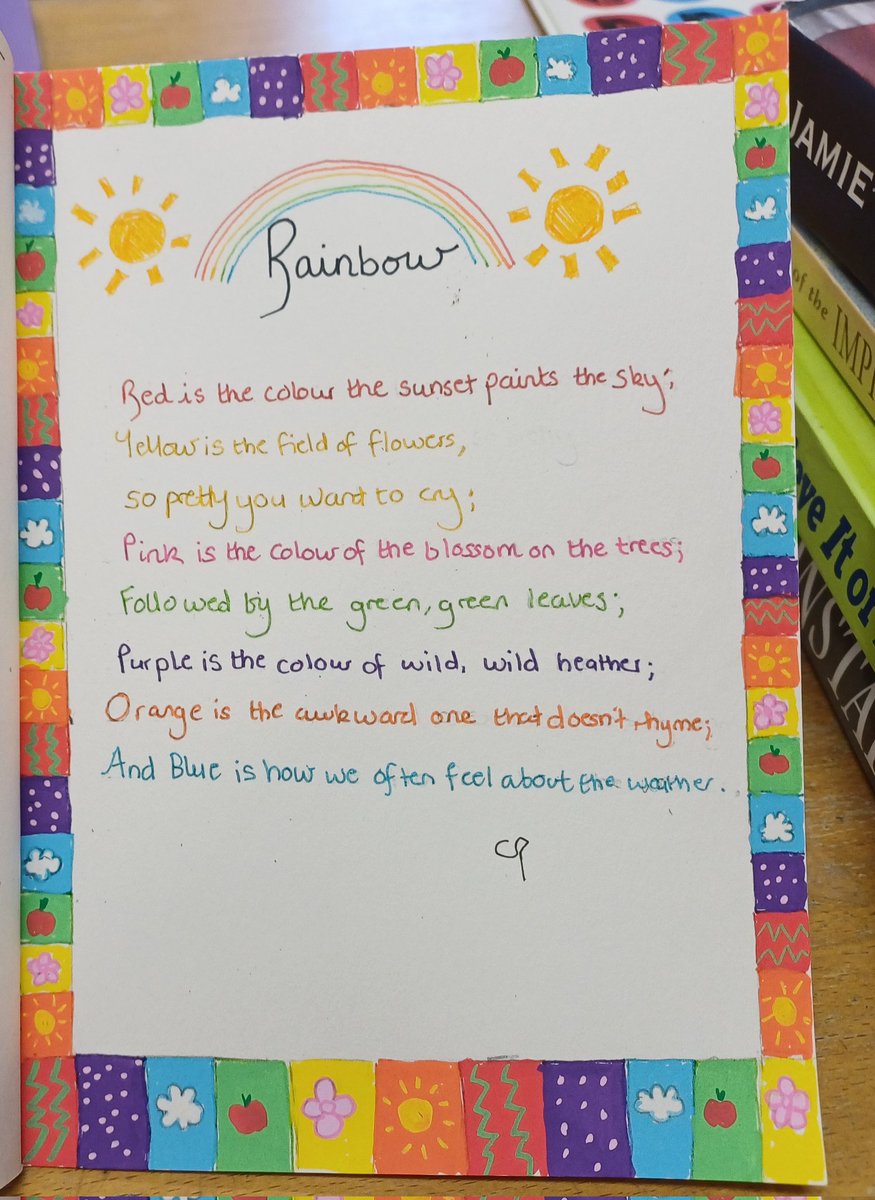 Rainbow
Red is the colour the sunset paints the sky;
Yellow is the field of flowers,
so pretty you want to cry;
Pink is the colour of the blossom on the trees;
Followed by the green, green leaves;
Purple is the colour of wild, wild heather;
Orange is the awkward one that doesn't rhyme;
And Blue is how we often feel about the weather.
CP
JAMIE'
of the IMP
eve It or
NSTA